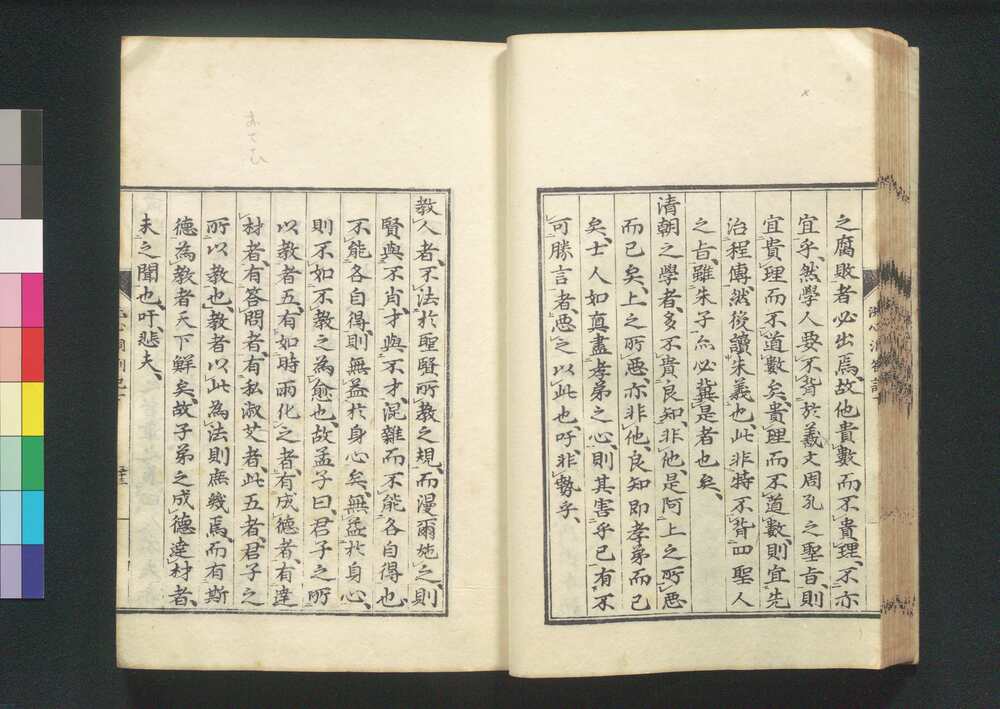 之腐敗者必出焉、故他貴數而不貴理、不亦
宜乎、然學人要不背於羲文周孔之聖旨、則
宜貴理而不道數矣、貴理而不道數、則宜先
治程傳、然後讀朱義也、此非特不背四聖人
之旨、雖朱子亦必冀是者也矣、
清朝之學者、多不貴良知、非他、是阿上之所惡
而已矣、上之所惡亦非他、良知即孝弟而已
矣、士人如真盡孝弟之心、則其害乎已有不
可勝言者、惡之以此也、吁、非勢乎、
教人者、不法於聖賢所教之規、而漫爾施之、則
賢與不肖才與不才、混雜而不能各自得也、
不能各自得、則無益於身心矣、無益於身心、
則不如不教之為愈也、故孟子曰、君子之所
以教者五、有如時雨化之者、有成德者、有達
材者、有答問者、有私淑艾者、此五者、君子之
所以教也、教者以此為法則庶幾焉、而有斯
德為教者天下鮮矣、故子弟之成德達材者、
未之聞也、吁悲夫、